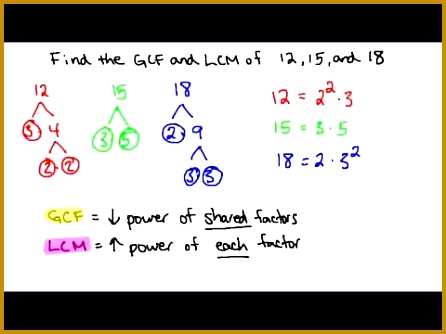 Find the GCF and LCM of 12, 15, and 18
12 15 18
3 4 3 5 2 9
2 2 3 3
12 = 2² · 3
15 = 3 · 5
18 = 2 · 3²
GCF = ↓ power of shared factors
LCM = ↑ power of each factor